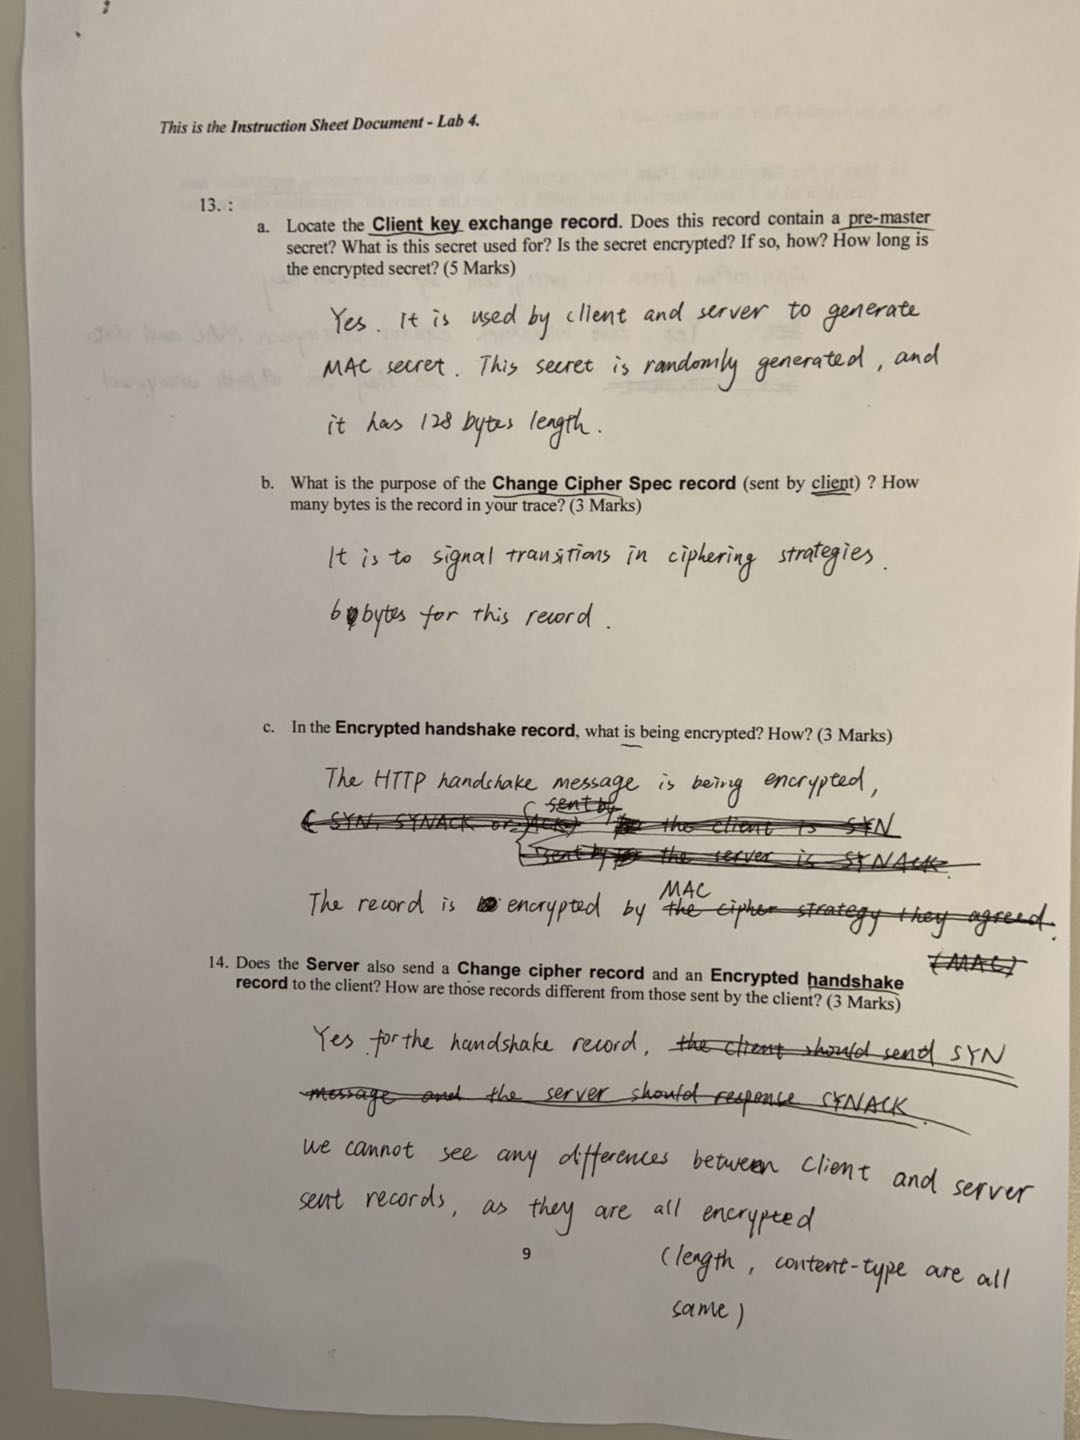 This is the Instruction Sheet Document - Lab 4.
13. :
a. Locate the Client key exchange record. Does this record contain a pre-master
secret? What is this secret used for? Is the secret encrypted? If so, how? How long is
the encrypted secret? (5 Marks)
Yes. It is used by client and server to generate
MAC secret. This secret is randomly generated, and
it has 128 bytes length.
b. What is the purpose of the Change Cipher Spec record (sent by client) ? How
many bytes is the record in your trace? (3 Marks)
It is to signal transitions in ciphering strategies.
6 bytes for this record.
c. In the Encrypted handshake record, what is being encrypted? How? (3 Marks)
The HTTP handshake message is being encrypted,
sent by
( SYN, SYNACK or ACK) the client is SYN
sent by the server is SYNACK
MAC
The record is encrypted by the cipher strategy they agreed.
(MAC)
14. Does the Server also send a Change cipher record and an Encrypted handshake
record to the client? How are those records different from those sent by the client? (3 Marks)
Yes for the handshake record, the client should send SYN
message and the server should response SYNACK.
we cannot see any differences between client and server
sent records, as they are all encrypted
9
(length, content-type are all
same)